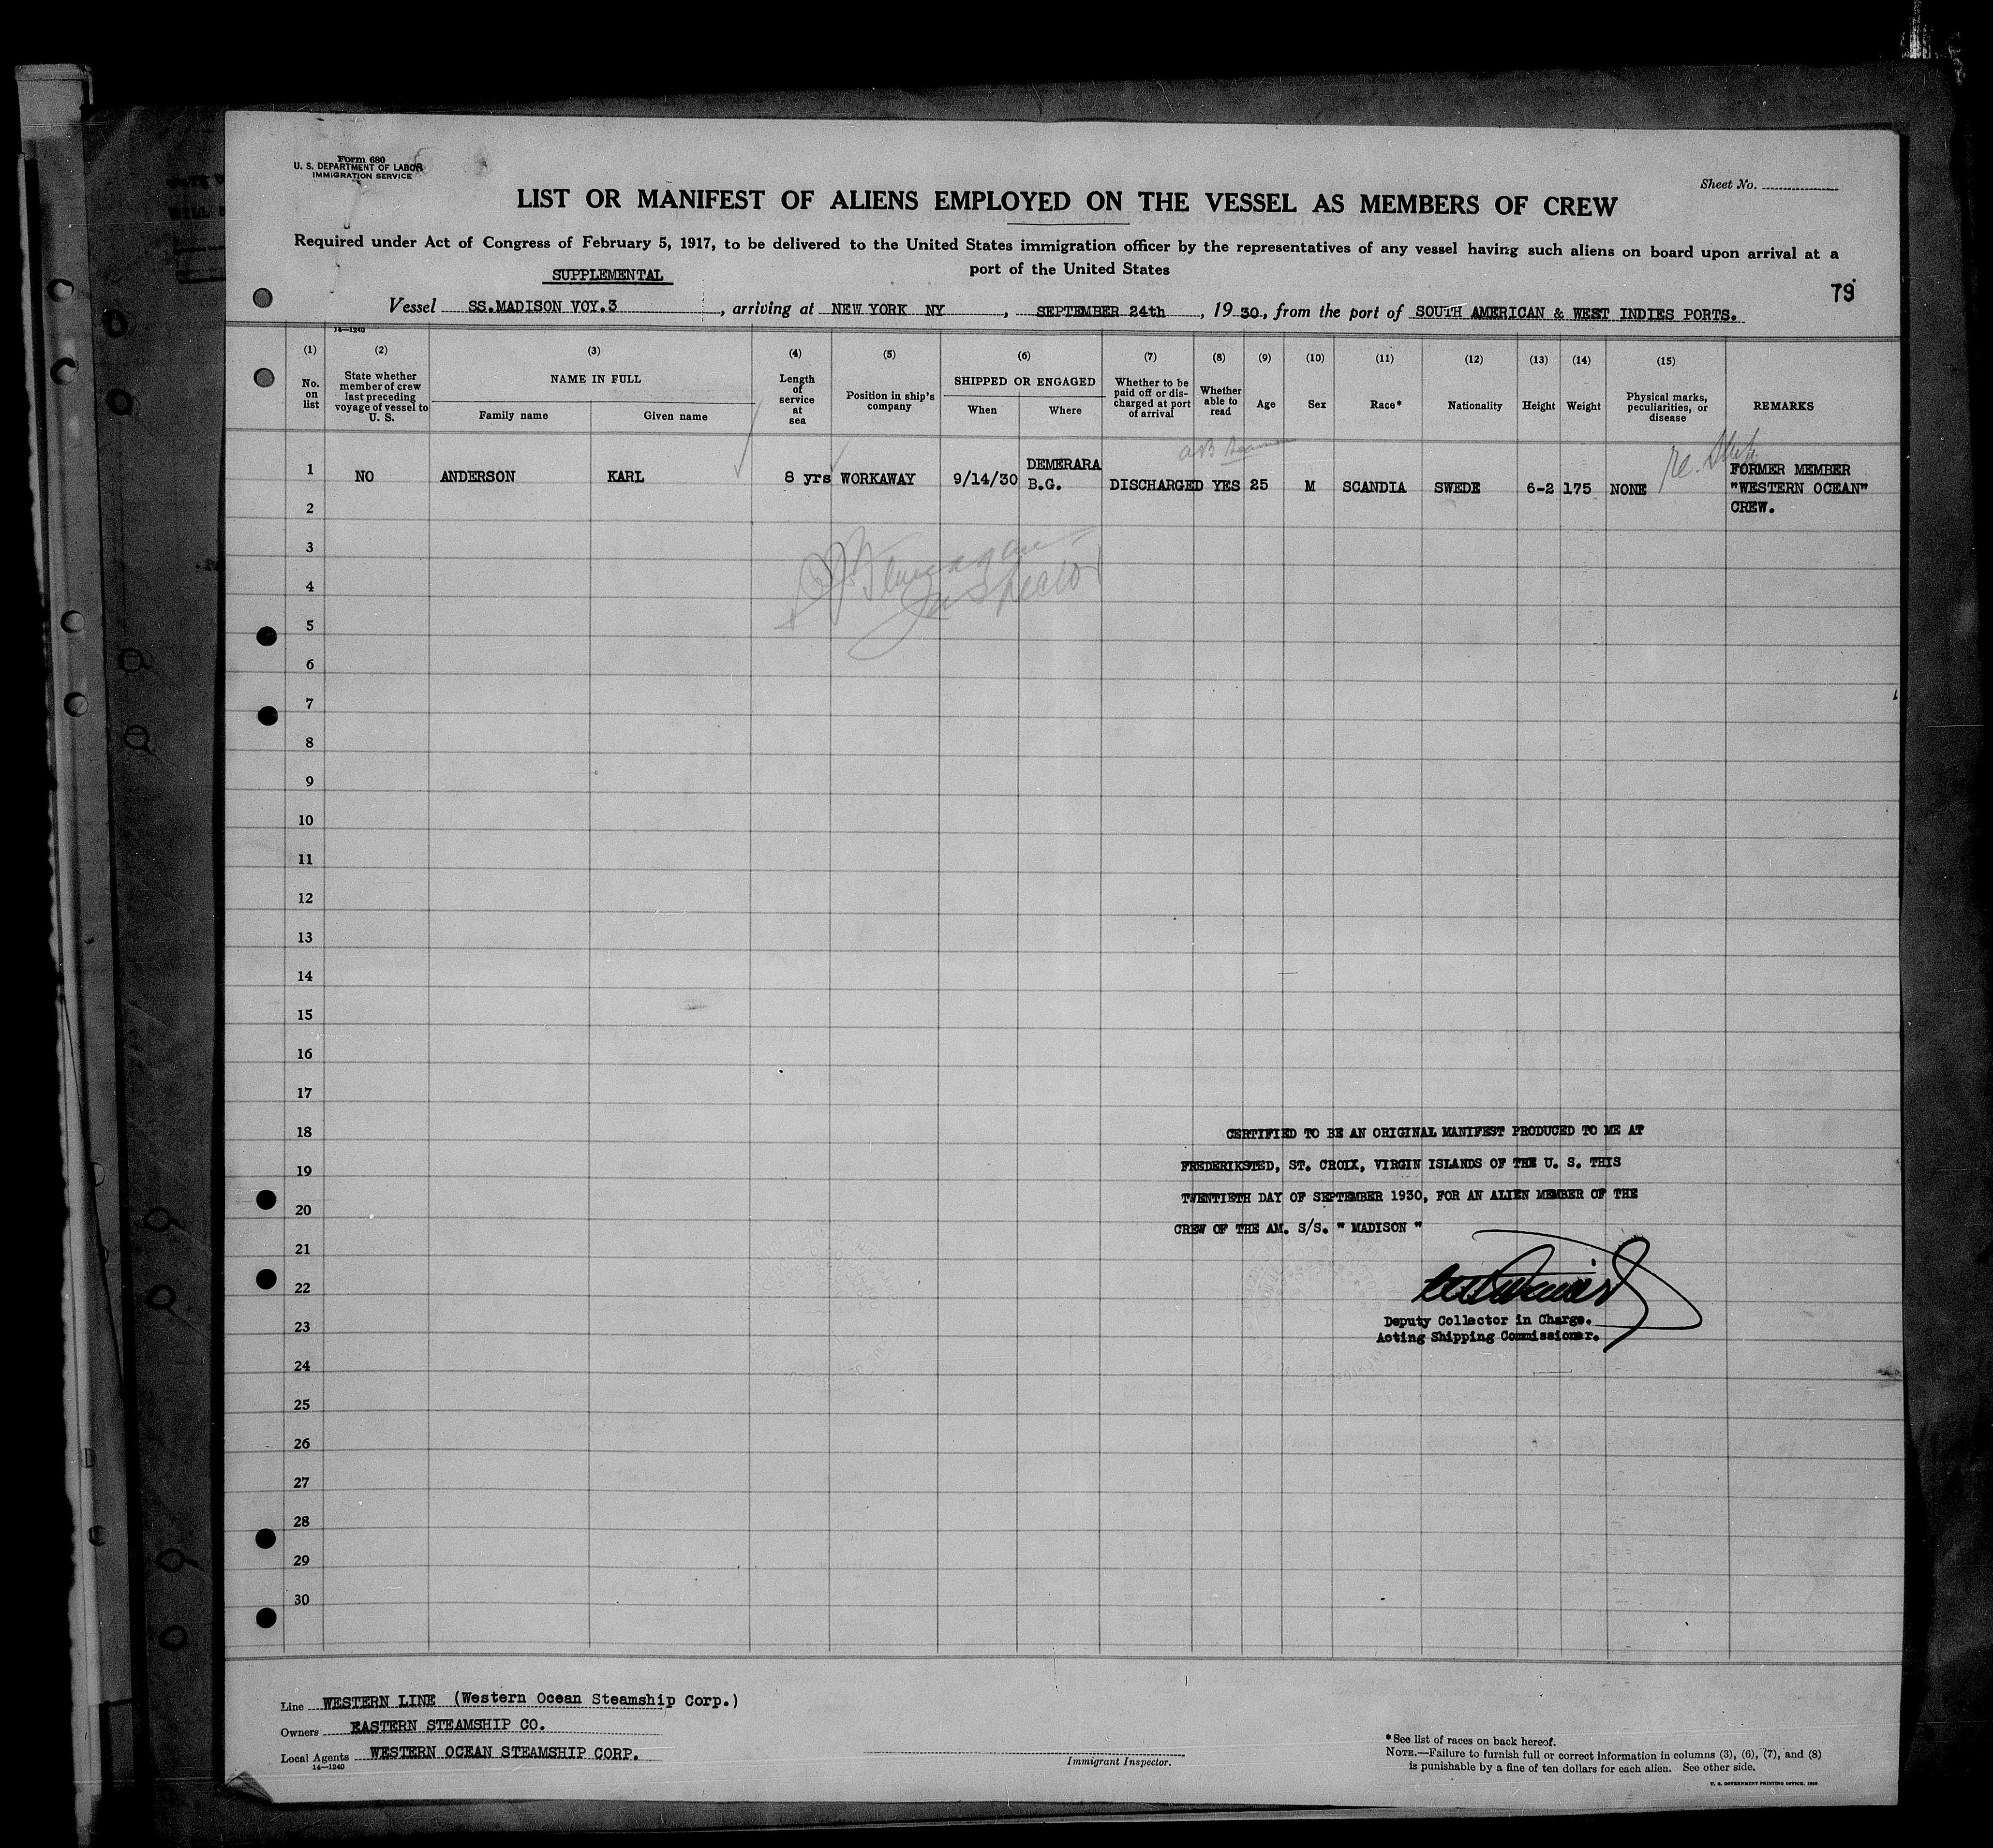 Form 680
U. S. DEPARTMENT OF LABOR
IMMIGRATION SERVICE
Sheet No.
LIST OR MANIFEST OF ALIENS EMPLOYED ON THE VESSEL AS MEMBERS OF CREW
Required under Act of Congress of February 5, 1917, to be delivered to the United States immigration officer by the representatives of any vessel having such aliens on board upon arrival at a
port of the United States
SUPPLEMENTAL
79
Vessel SS.MADISON VOY.3, arriving at NEW YORK NY, SEPTEMBER 24th, 1930, from the port of SOUTH AMERICAN & WEST INDIES PORTS.
14—1240
(1) (2) (3) (4) (5) (6) (7) (8) (9) (10) (11) (12) (13) (14) (15)
No. on list
State whether member of crew last preceding voyage of vessel to U. S.
NAME IN FULL
Family name
Given name
Length of service at sea
Position in ship's company
SHIPPED OR ENGAGED
When
Where
Whether to be paid off or discharged at port of arrival
Whether able to read
Age
Sex
Race*
Nationality
Height
Weight
Physical marks, peculiarities, or disease
REMARKS
1 NO ANDERSON KARL 8 yrs WORKAWAY 9/14/30 DEMERARA B.G. DISCHARGED YES 25 M SCANDIA SWEDE 6-2 175 NONE FORMER MEMBER "WESTERN OCEAN" CREW.
2
3
Inspector
4
5
6
7
8
9
10
11
12
13
14
15
16
17
18
19
20
21
22
23
24
25
26
27
28
29
30
CERTIFIED TO BE AN ORIGINAL MANIFEST PRODUCED TO ME AT
FREDERIKSTED, ST. CROIX, VIRGIN ISLANDS OF THE U. S. THIS
TWENTIETH DAY OF SEPTEMBER 1930, FOR AN ALIEN MEMBER OF THE
CREW OF THE AM. S/S. " MADISON "
Deputy Collector in Charge.
Acting Shipping Commissioner.
Line WESTERN LINE (Western Ocean Steamship Corp.)
Owners EASTERN STEAMSHIP CO.
Local Agents WESTERN OCEAN STEAMSHIP CORP.
14—1240
Immigrant Inspector.
*See list of races on back hereof.
NOTE.—Failure to furnish full or correct information in columns (3), (6), (7), and (8)
is punishable by a fine of ten dollars for each alien. See other side.